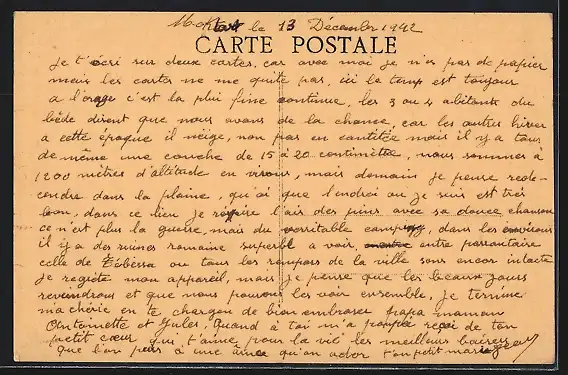 le 13 Décembr 1942
CARTE POSTALE
Je t'écri sur deux cartes, car avec moi je n'es pas de papier
mais les cartes ne me quite pas, ici le temp est toujour
a l'orage c'est la plui fine continue, les 3 ou 4 abitants du
bède disent que nous avons de la chance, car les autres hiver
a cette époque il neige, non pas en cantitée mais il y a tous
de même une couche de 15 à 20 centimètre, nous sommes à
1200 mètres d'altitude en viron, mais demain je pense rede-
cendre dans la plaine, qu'ai que l'endroi ou je suis est très
bon, dans ce lieu je respire l'air des pins avec sa douce chanson
ce n'est plus la guerre, mais du verritable camping, dans les environs
il y a des ruines romaine superbe a voir, entre parsantaire
celle de Tébessa ou tous les rempars de la ville sons encor intacte
Je regrète mon appareil, mais je pense que les beaux jours
reviendrons et que nous pouvons les voir ensemble, Je termine
ma chérie en te chargon de bien embrasser papa maman
Antoinette et Jules, Quand à toi m'a poupée reçoi de ton
petit cœur qui t'aime pour la vie les meilleurs baisers
que l'on peus a une âmée qu'on ador ton petit mari